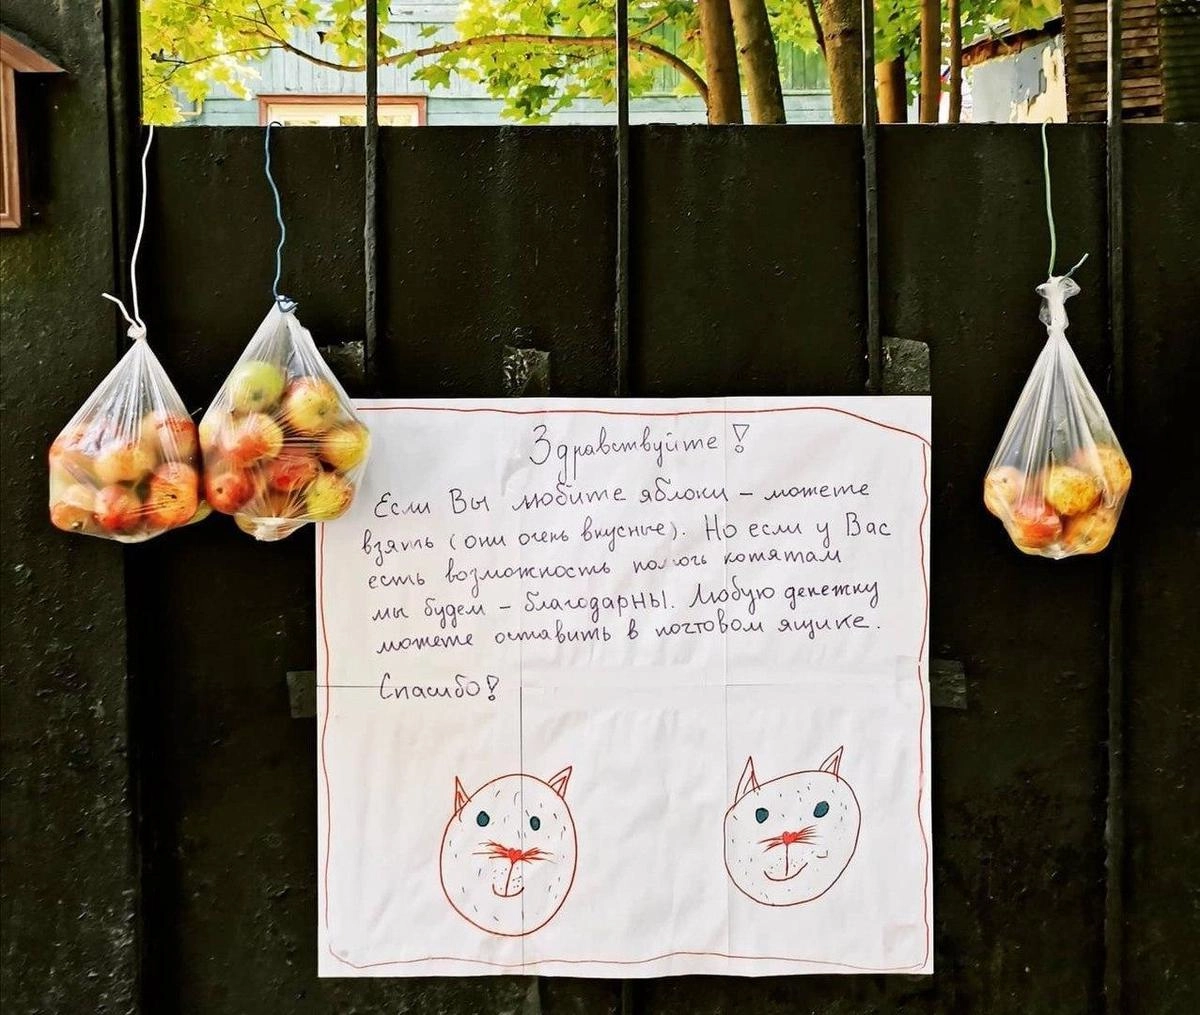 Здравствуйте!
Если Вы любите яблоки - можете
взять (они очень вкусные). Но если у Вас
есть возможность помочь котятам
мы будем - благодарны. Любую денежку
можете оставить в почтовом ящике.
Спасибо!